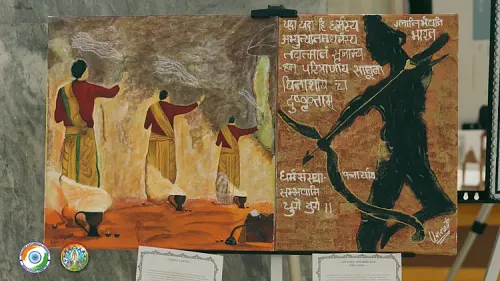 यदा यदा हि धर्मस्य
ग्लानिर्भवति
भारत
अभ्युत्थानमधर्मस्य
तदात्मानं सृजाम्य
हम परित्राणाय साधूनां
विनाशाय च
दुष्कृताम्
धर्मसंस्था पनार्थाय
सम्भवामि
युगे युगे ।।